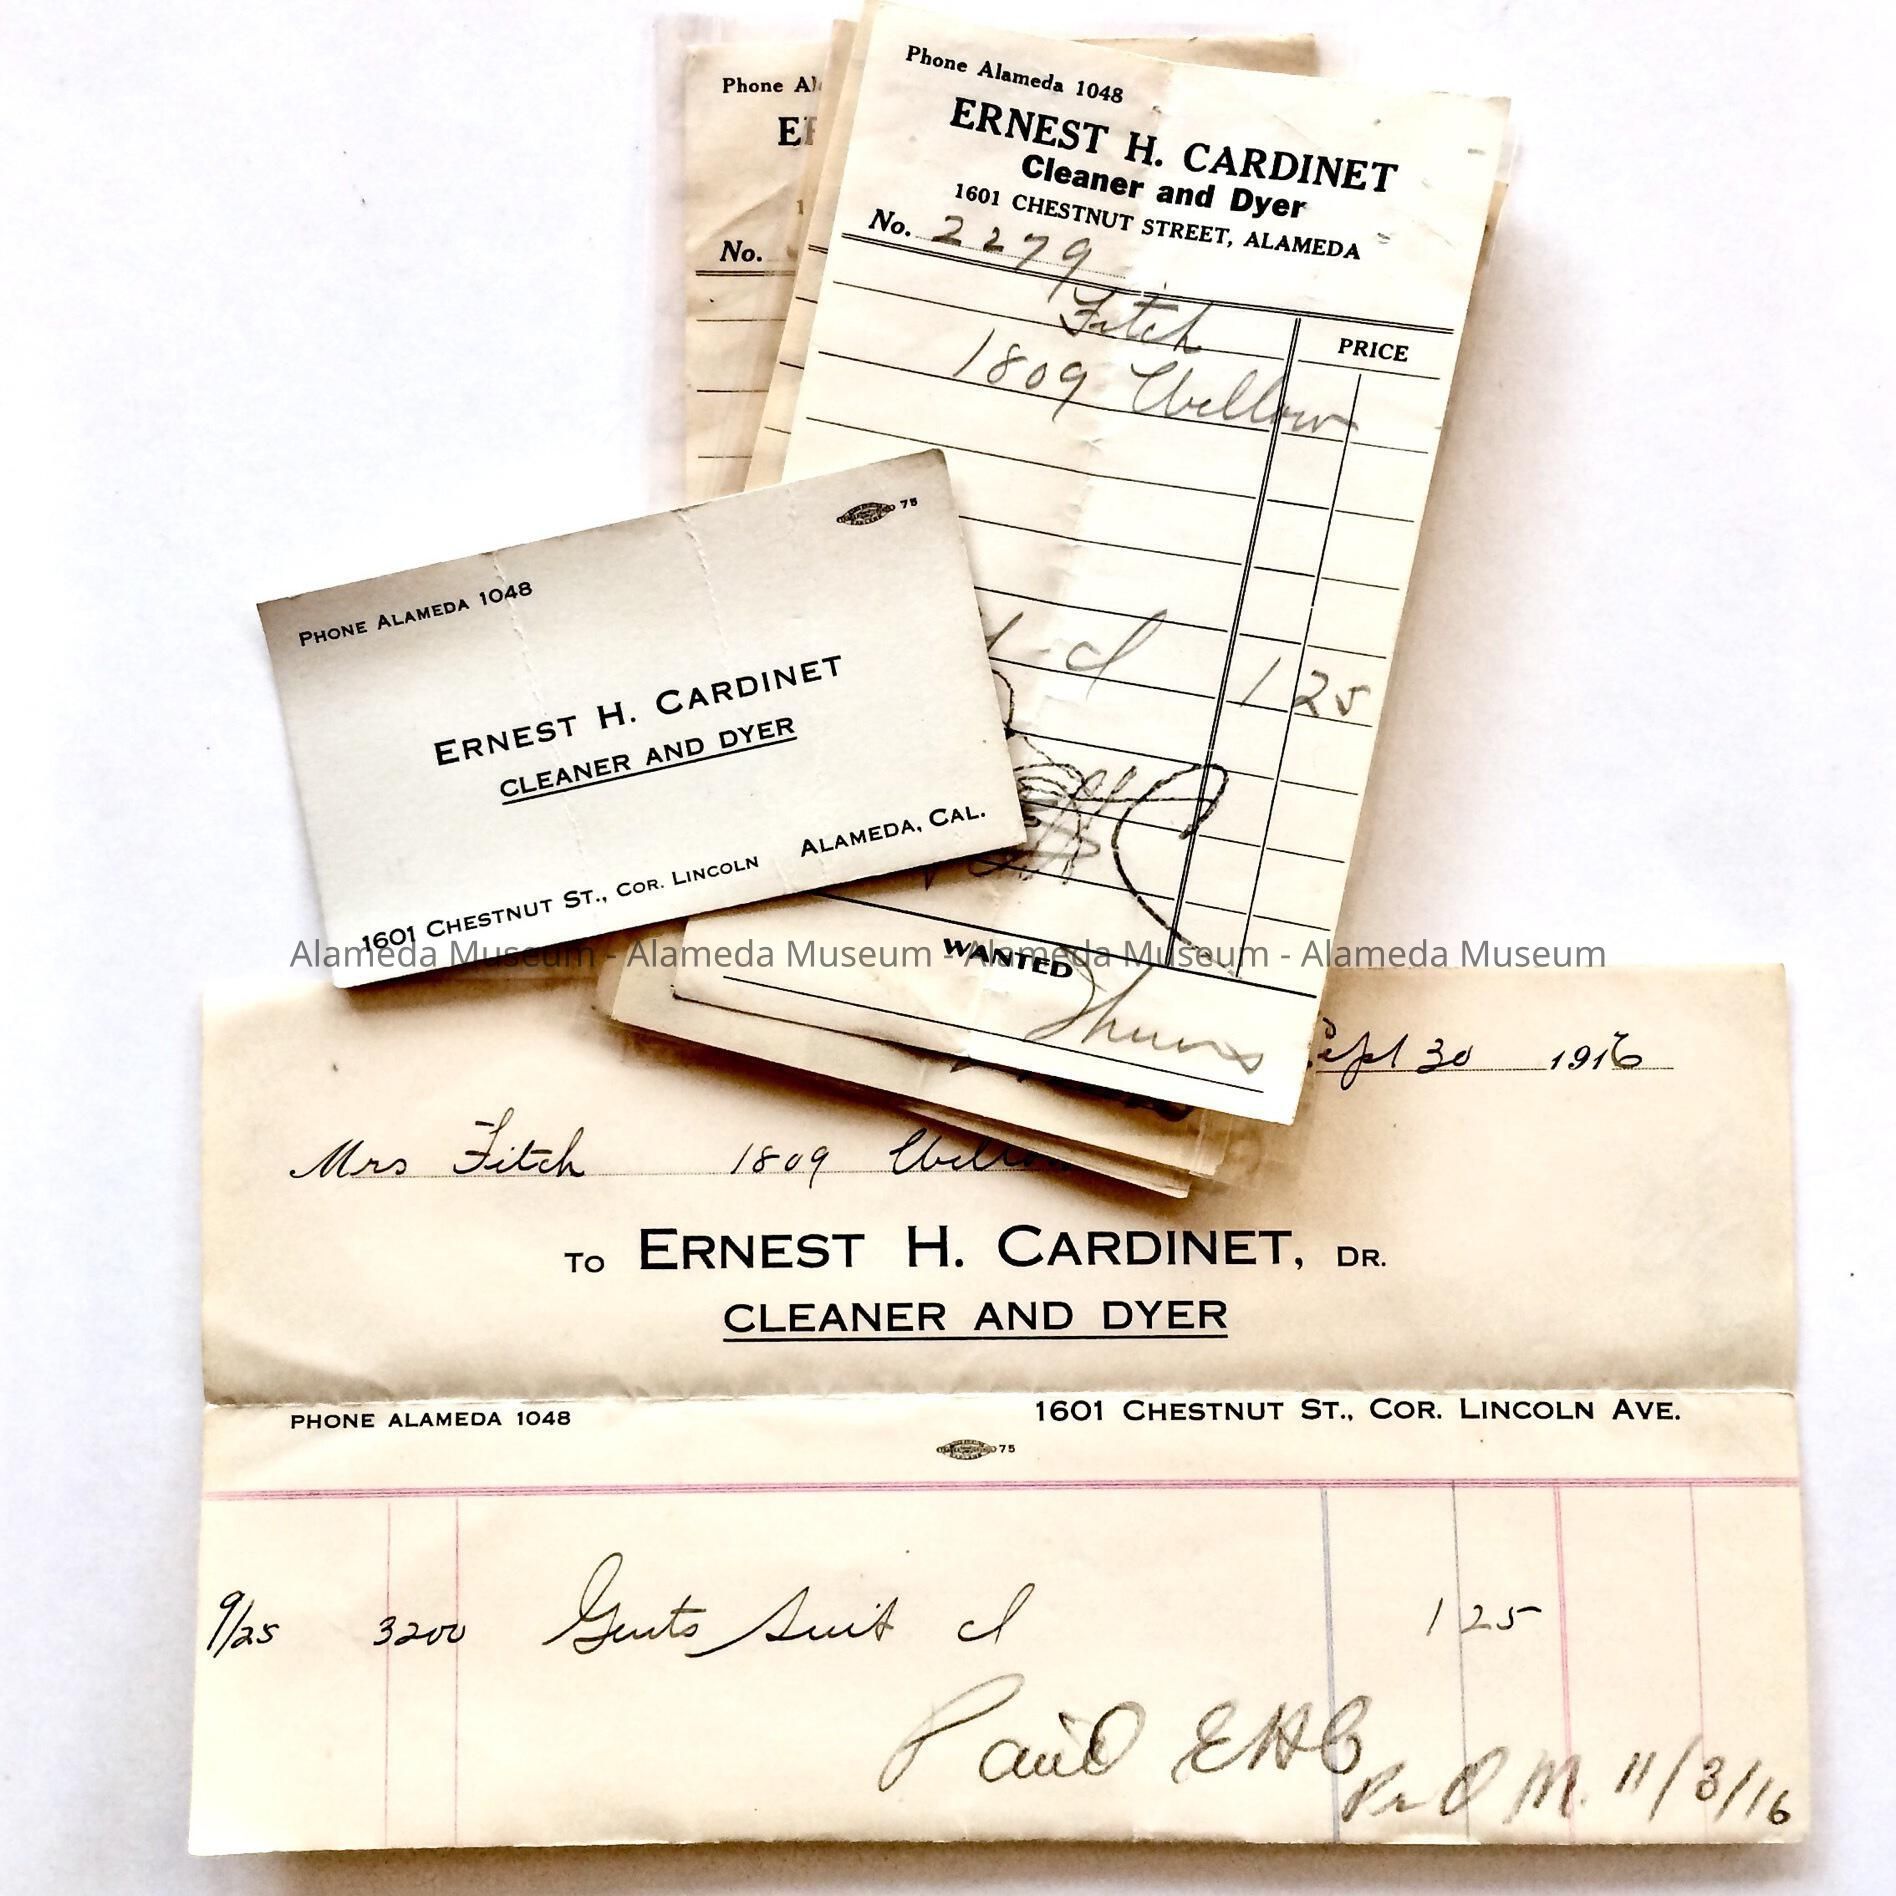 Phone Al
ER
No.
Phone Alameda 1048
ERNEST H. CARDINET
Cleaner and Dyer
1601 CHESTNUT STREET, ALAMEDA
No. 2279
Fitch
PRICE
1809 Willow
cl 1 25
WANTED
Thurs
75
PHONE ALAMEDA 1048
ERNEST H. CARDINET
CLEANER AND DYER
1601 CHESTNUT ST., COR. LINCOLN ALAMEDA, CAL.
Alameda Museum - Alameda Museum - Alameda Museum - Alameda Museum
Sept 30 1916
Mrs Fitch 1809 Willow
TO ERNEST H. CARDINET, DR.
CLEANER AND DYER
PHONE ALAMEDA 1048 1601 CHESTNUT ST., COR. LINCOLN AVE.
75
9/25 3200 Gents Suit cl 1 25
Paid EHC
11/3/16